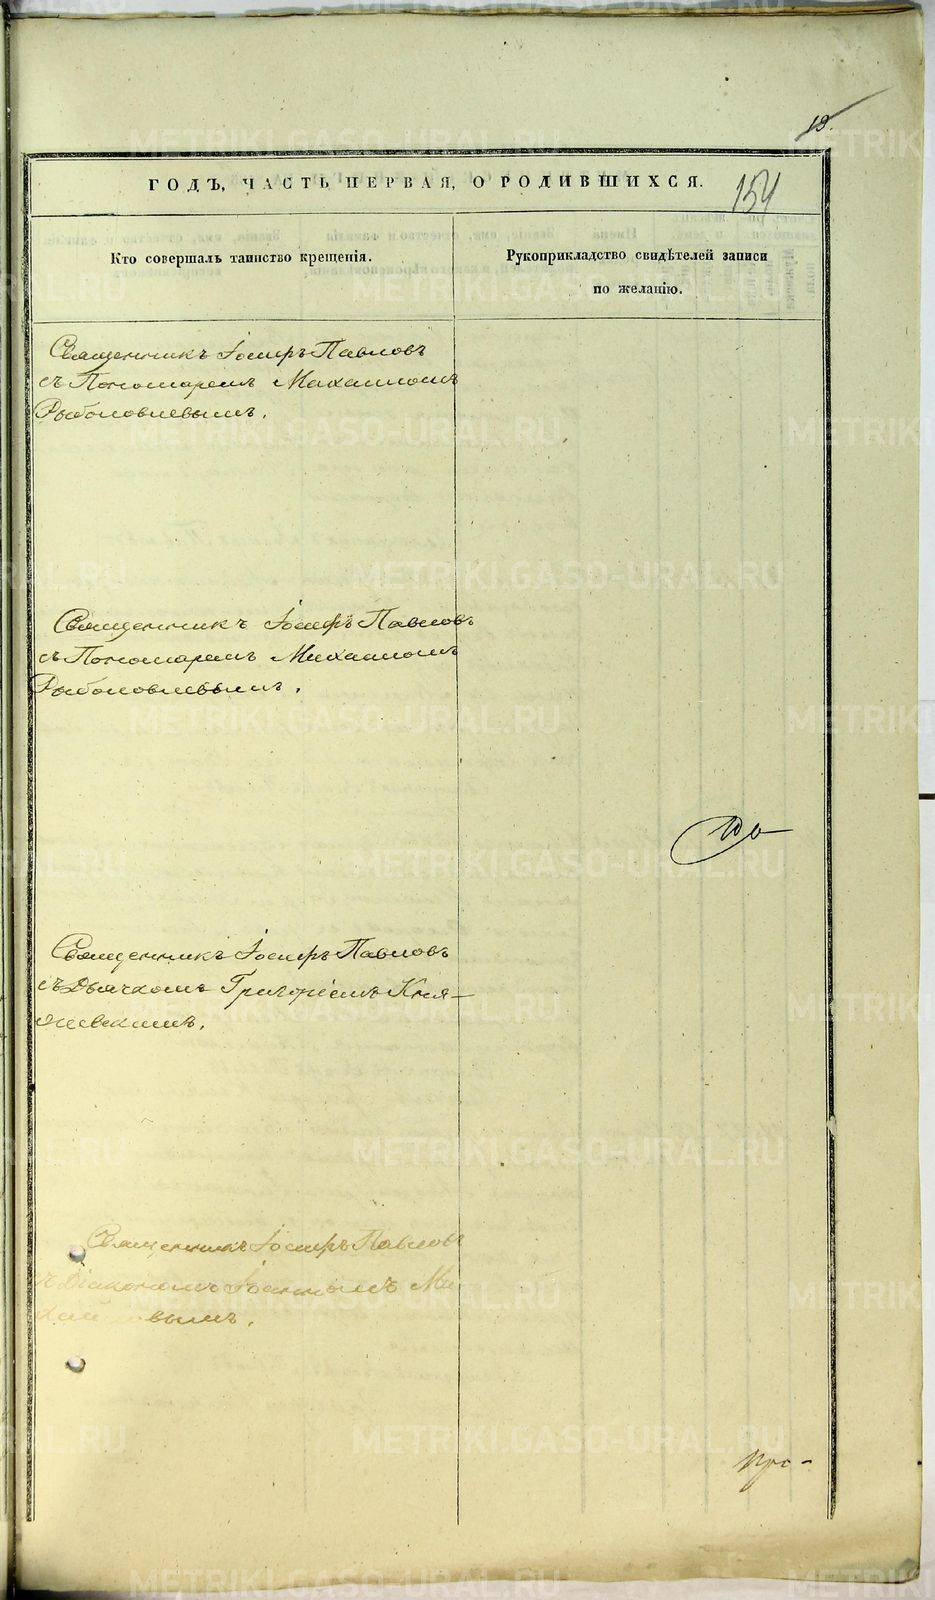 19.
ГОДЪ, ЧАСТЬ ПЕРВАЯ, О РОДИВШИХСЯ.
154
Кто совершалъ таинство крещенія.
Рукоприкладство свидѣтелей записи
по желанію.
Священникъ Іосифъ Павловъ
съ Пономаремъ Михаиломъ
Рыболовлевымъ.
Священникъ Іосифъ Павловъ
съ Пономаремъ Михаиломъ
Рыболовлевымъ.
Священникъ Іосифъ Павловъ
съ Дьячкомъ Григоріемъ Кня-
жевскимъ.
Священникъ Іосифъ Павловъ
съ Діакономъ Іоанномъ Ми
хай вымъ.
METRIKI.GASO-URAL.RU